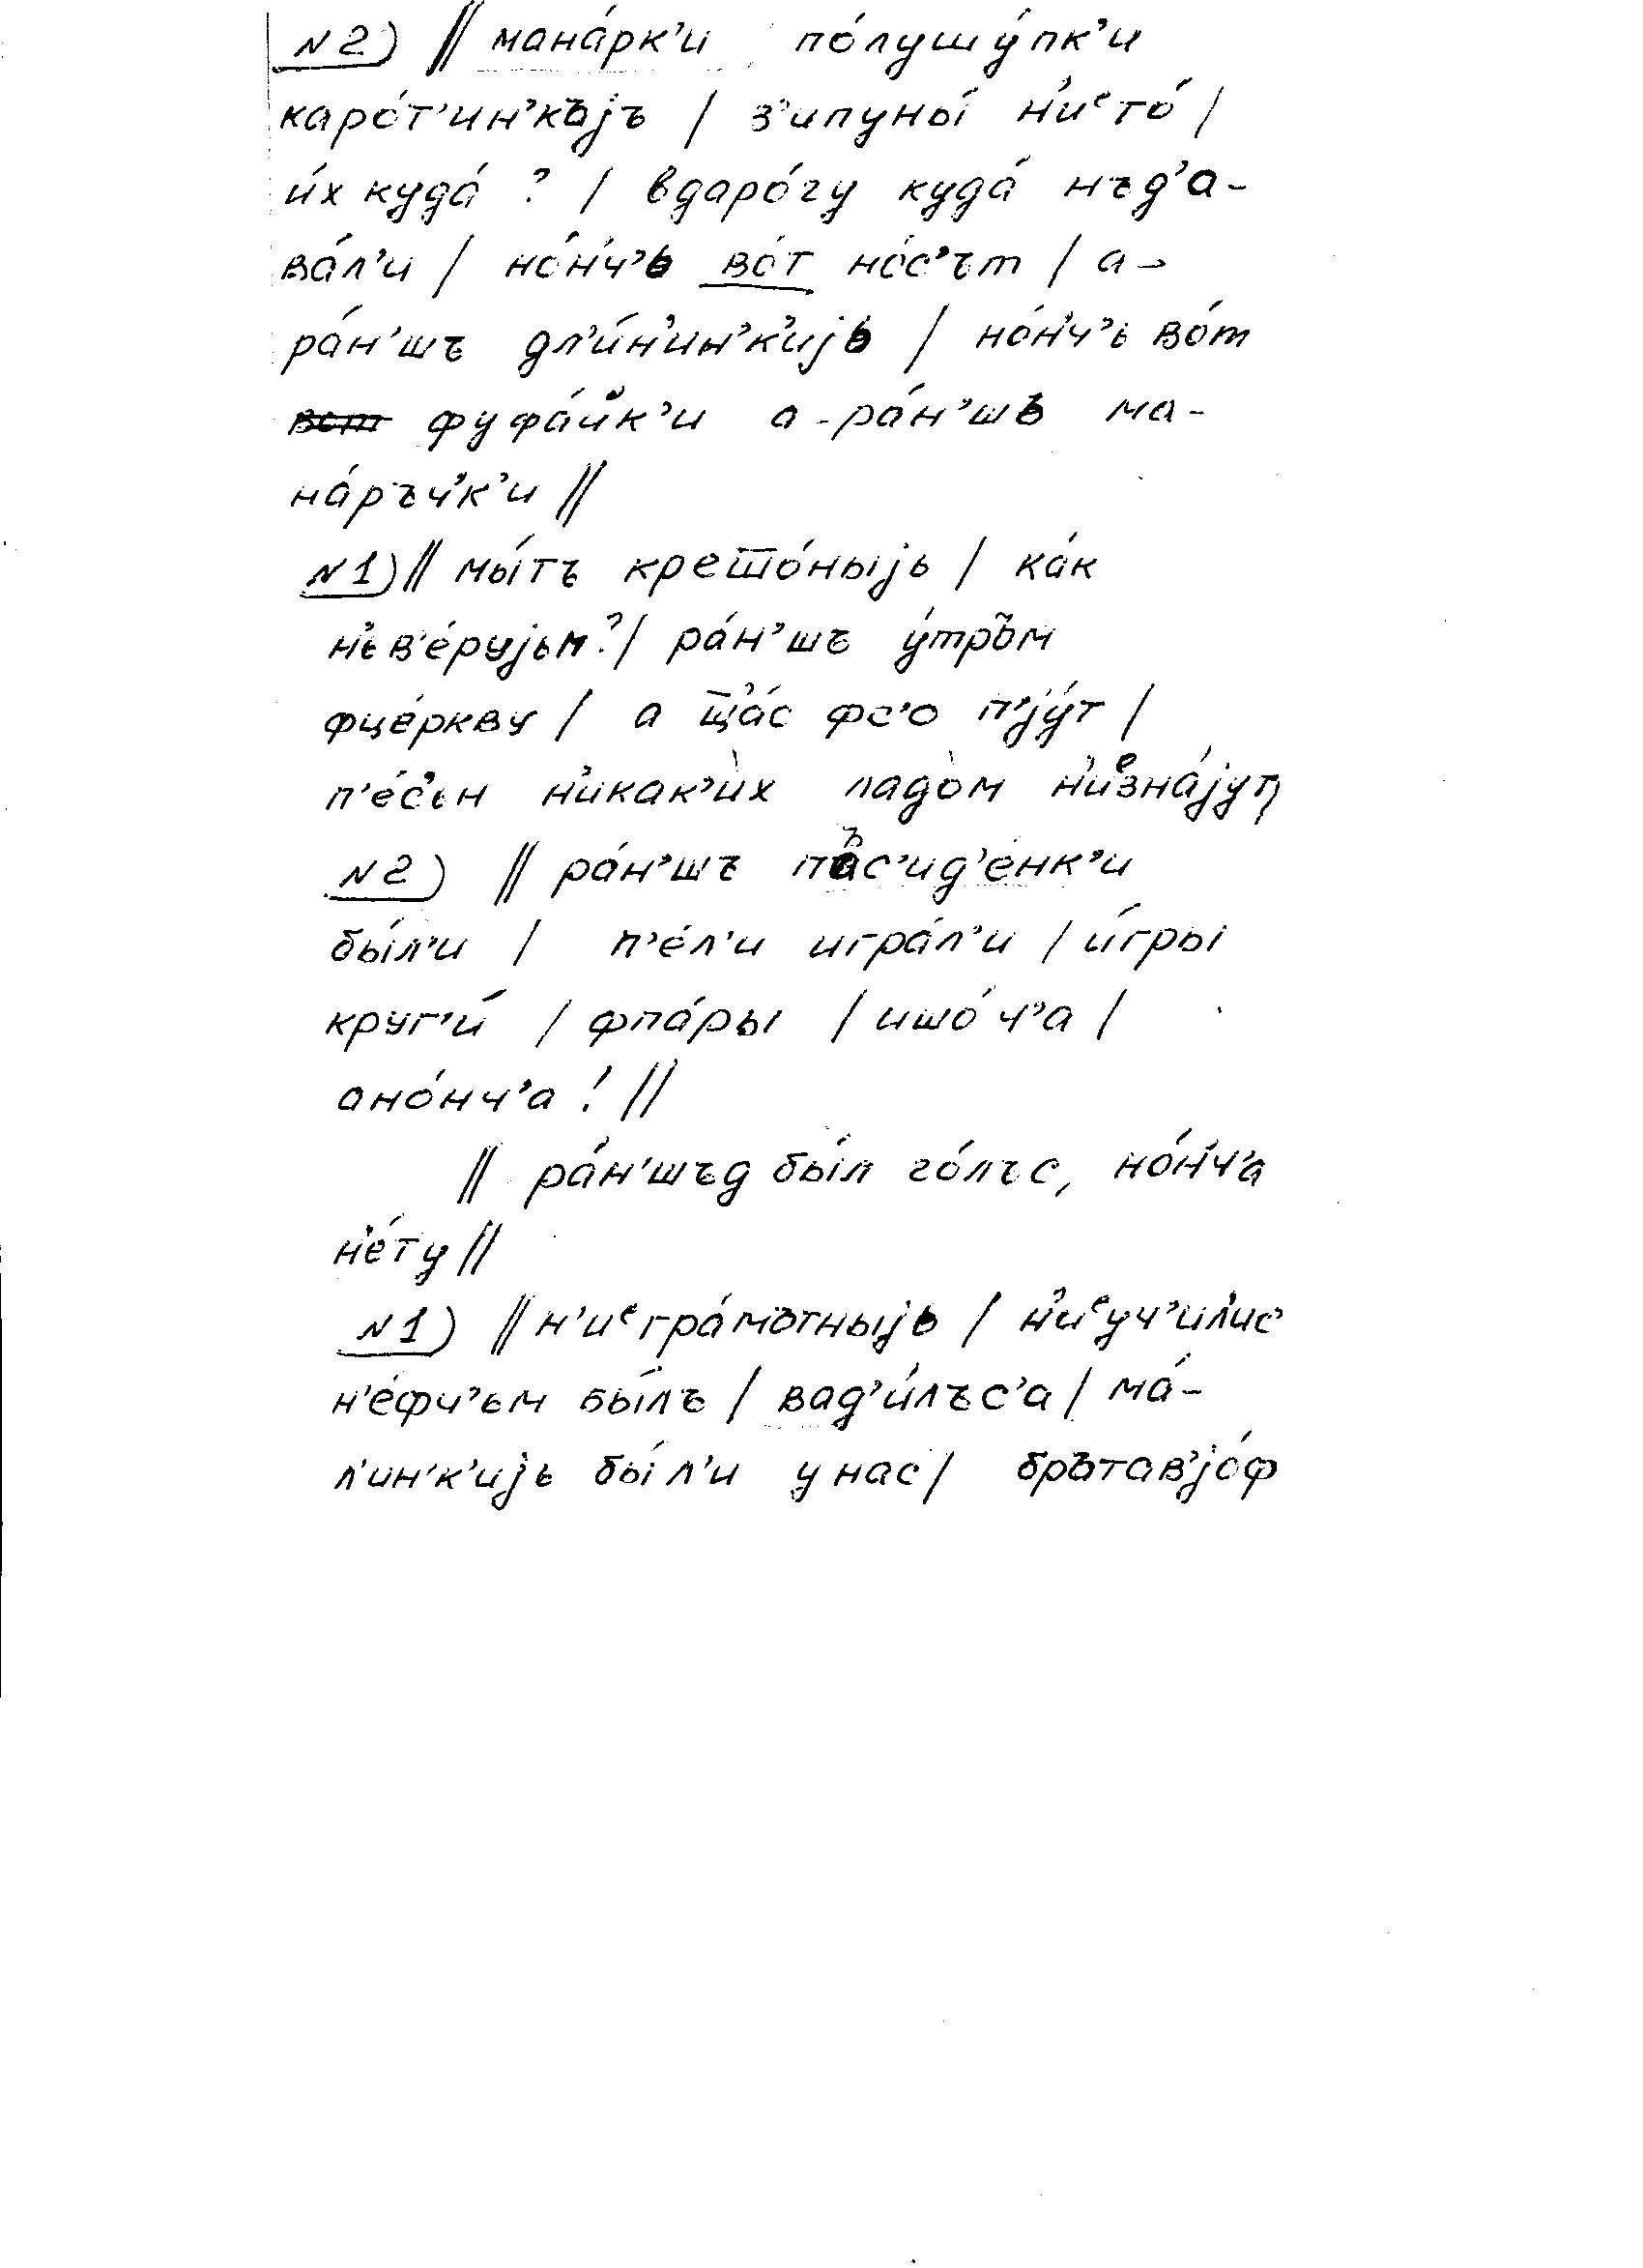 N2) || мана́рк'и по́лушу́пк'и
каро́т'ин'къjъ | з'ипуны́ н'иᵉто́ |
и́х куда́ ? | вдаро́гу куда́ нъд'а-
ва́л'и | но́н'ч'ь во́т но́с'ът | а-
ра́н'шъ дл'и́н'ин'к'иjь | но́н'ч'ь во́т
фуфа́йк'и а-ра́н'шъ ма-
на́ръч'к'и ||
N1) || мы́тъ крешо́ныjь | ка́к
н'ьв'е́руjьм? | ра́н'шъ у́тръм
фце́ркву | а щ'а́с фс'о п'jу́т |
п'е́с'ьн н'икак'и́х ладо́м н'иᵉзна́jут
N2) || ра́н'шъ пъс'ид'е́нк'и
бы́л'и | п'е́л'и игра́л'и | и́гры
круг'и́ | фпа́ры | ишо́ч'а |
ано́нч'а ! ||
|| ра́н'шъд бы́л го́лъс, но́н'ч'а
н'е́ту ||
N1) || н'иᵉгра́мътныjь | н'иᵉуч'ил'ис'
н'е́фч'ьм бы́лъ | вад'и́лъс'а | ма́-
л'ин'к'иjь бы́л'и у нас | брътав'jо́ф